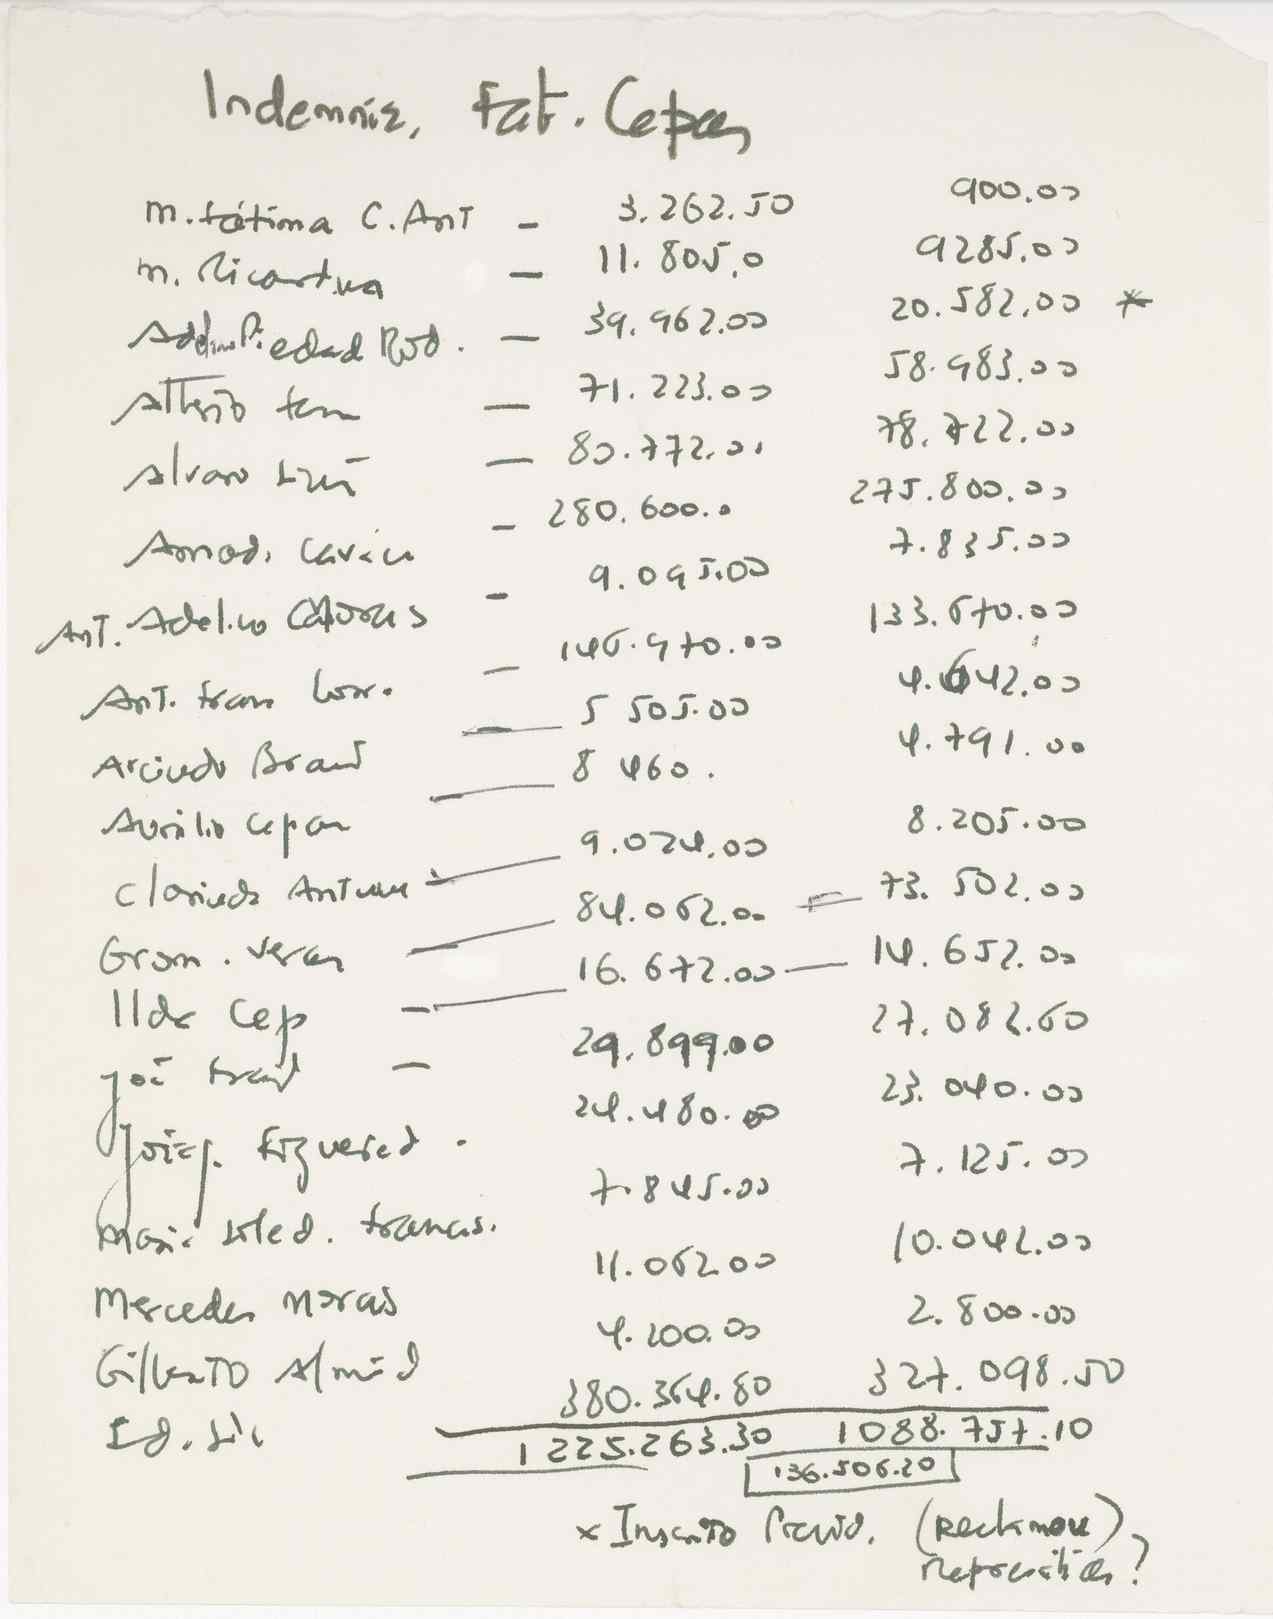 Indemniz. Fat. Cepas
M. Fátima C. Ant — 3.262.50 900.00
M. Ricartina — 11.805.0 9285.00
Piedad Rod. — 39.962.00 20.582.00 *
— 71.223.00 58.983.00
Alvaro — 80.772.00 78.722.00
Amad. — 280.600.0 275.800.00
Ant. Adelino — 9.095.00 7.835.00
Ant. Fran — 146.970.00 133.670.00
Arcindo Brand — 5 505.00 4.642.00
Aurilio Cepa — 8 460. 4.791.00
Clarindo Antun — 9.024.00 8.205.00
Grom. Veran — 84.062.00 — 73.502.00
Ilda Cep — 16.672.00 — 14.652.00
— 29.899.00 27.082.60
Figuered. 24.480.00 23.040.00
Francis. 7.845.00 7.125.00
Mercedes Moras 11.062 00 10.042.00
Gilberto Almeid 4.200.00 2.800.00
380.364.80 327.098.50
1 225.263.30 1088.757.10
136.506.20
x Inscrito (Reclamou)
?